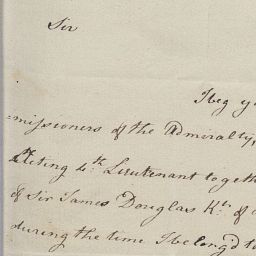 Sir
I beg y
=missioners of the Admiralty,
Acting 4th Lieutenant togeth
of Sir James Douglas Kt. of
during the time I belong'd to